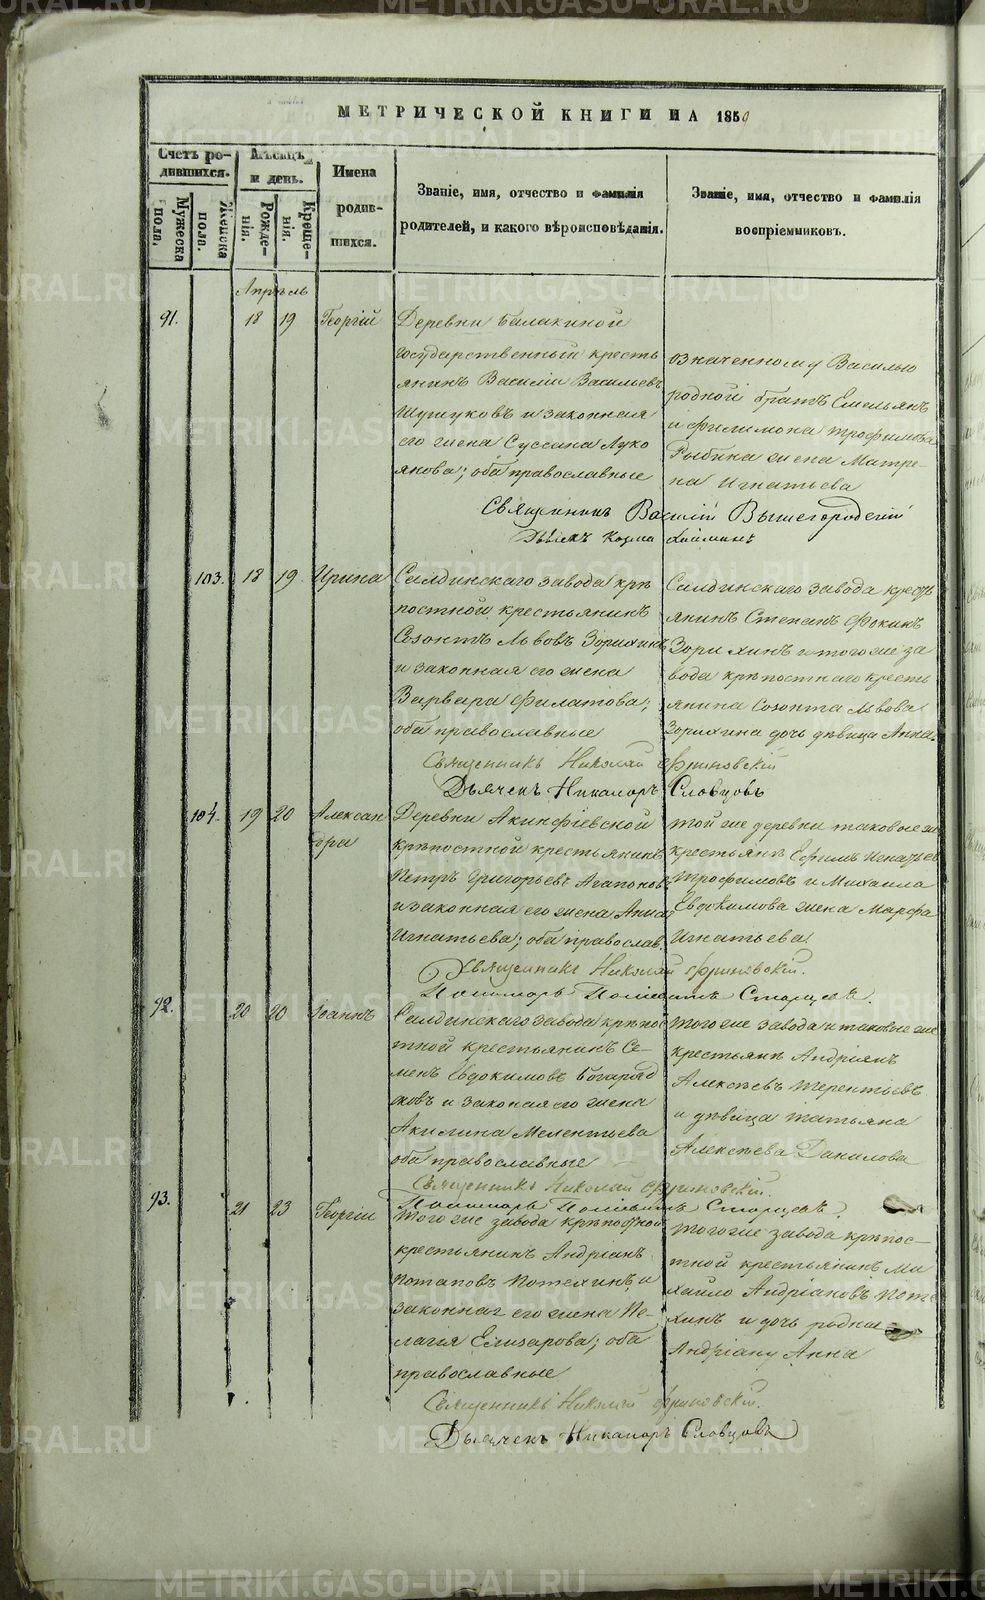 МЕТРИЧЕСКОЙ КНИГИ НА 1859
Счетъ ро-
дившихся.
Мужеска
пола.
Женска
пола.
Мѣсяцъ
и день.
Рожде-
нія.
Креще-
нія.
Имена
родив-
шихся.
Званіе, имя, отчество и фамилія
родителей, и какого вѣроисповѣданія.
Званіе, имя, отчество и фамилія
воспріемниковъ.
Апрѣль
91. 18 19 Георгій
Деревни Балакиной
государственный кресть
янинъ Василій Васильевъ
Шушуковъ и законная
его жена Суссана Луко
янова; оба православные
означенному Василью
родной братъ Емельянъ
и Филимона Трофимова
Рыбина жена Матре-
на Игнатьева
Священникъ Василій Вышегородскій
Дьячекъ Козма
103. 18 19 Ирина
Салдинскаго завода крѣ
постной крестьянинъ
Созонтъ Львовъ Зорихинъ
и законная его жена
Варвара Филатова;
оба православные
Салдинскаго завода крест
янинъ Степанъ Фокинъ
Зорихинъ и того же за
вода крѣпостнаго кресть
янина Созонта Львова
Зорихина дочь дѣвица Анна.
Священникъ Николай Фриновскій
Дьячекъ Никаноръ Словцовъ
104. 19 20 Алексан
дра
Деревни Акинфіевской
крѣпостной крестьянинъ
Петръ Григорьевъ Агапоновъ
и законная его жена Анна
Игнатьева; оба православ.
той же деревни таковые же
крестьянъ Ефимъ Игнатьев
Трофимовъ и Михаила
Евдокимова жена Марфа
Игнатьева
Священникъ Николай Фриновскій.
Пономарь Старцевъ.
92. 20 20 Іоаннъ
Салдинскаго завода крѣпос
тной крестьянинъ Се-
менъ Евдокимовъ Богаряд
сковъ и законая его жена
Акилина Мелентьева
оба православные
того же завода и таковые же
крестьянъ Андріянъ
Алексѣевъ Терентіевъ
и дѣвица Татьяна
Алексѣева Данилова
Священникъ Николай Фриновскій.
Пономарь Старцевъ.
93. 21 23 Георгій
того же завода крѣпосной
крестьянинъ Андріанъ
Потаповъ Потехинъ, и
законная его жена Пе-
лагія Елизарова; оба
православные
того же завода крѣпос-
тной крестьянинъ Ми
хайло Андріановъ Поте
хинъ и дочь родная
Андріану Анна
Священникъ Николай Фриновскій.
Дьячекъ Никаноръ Словцовъ
METRIKI.GASO-URAL.RU